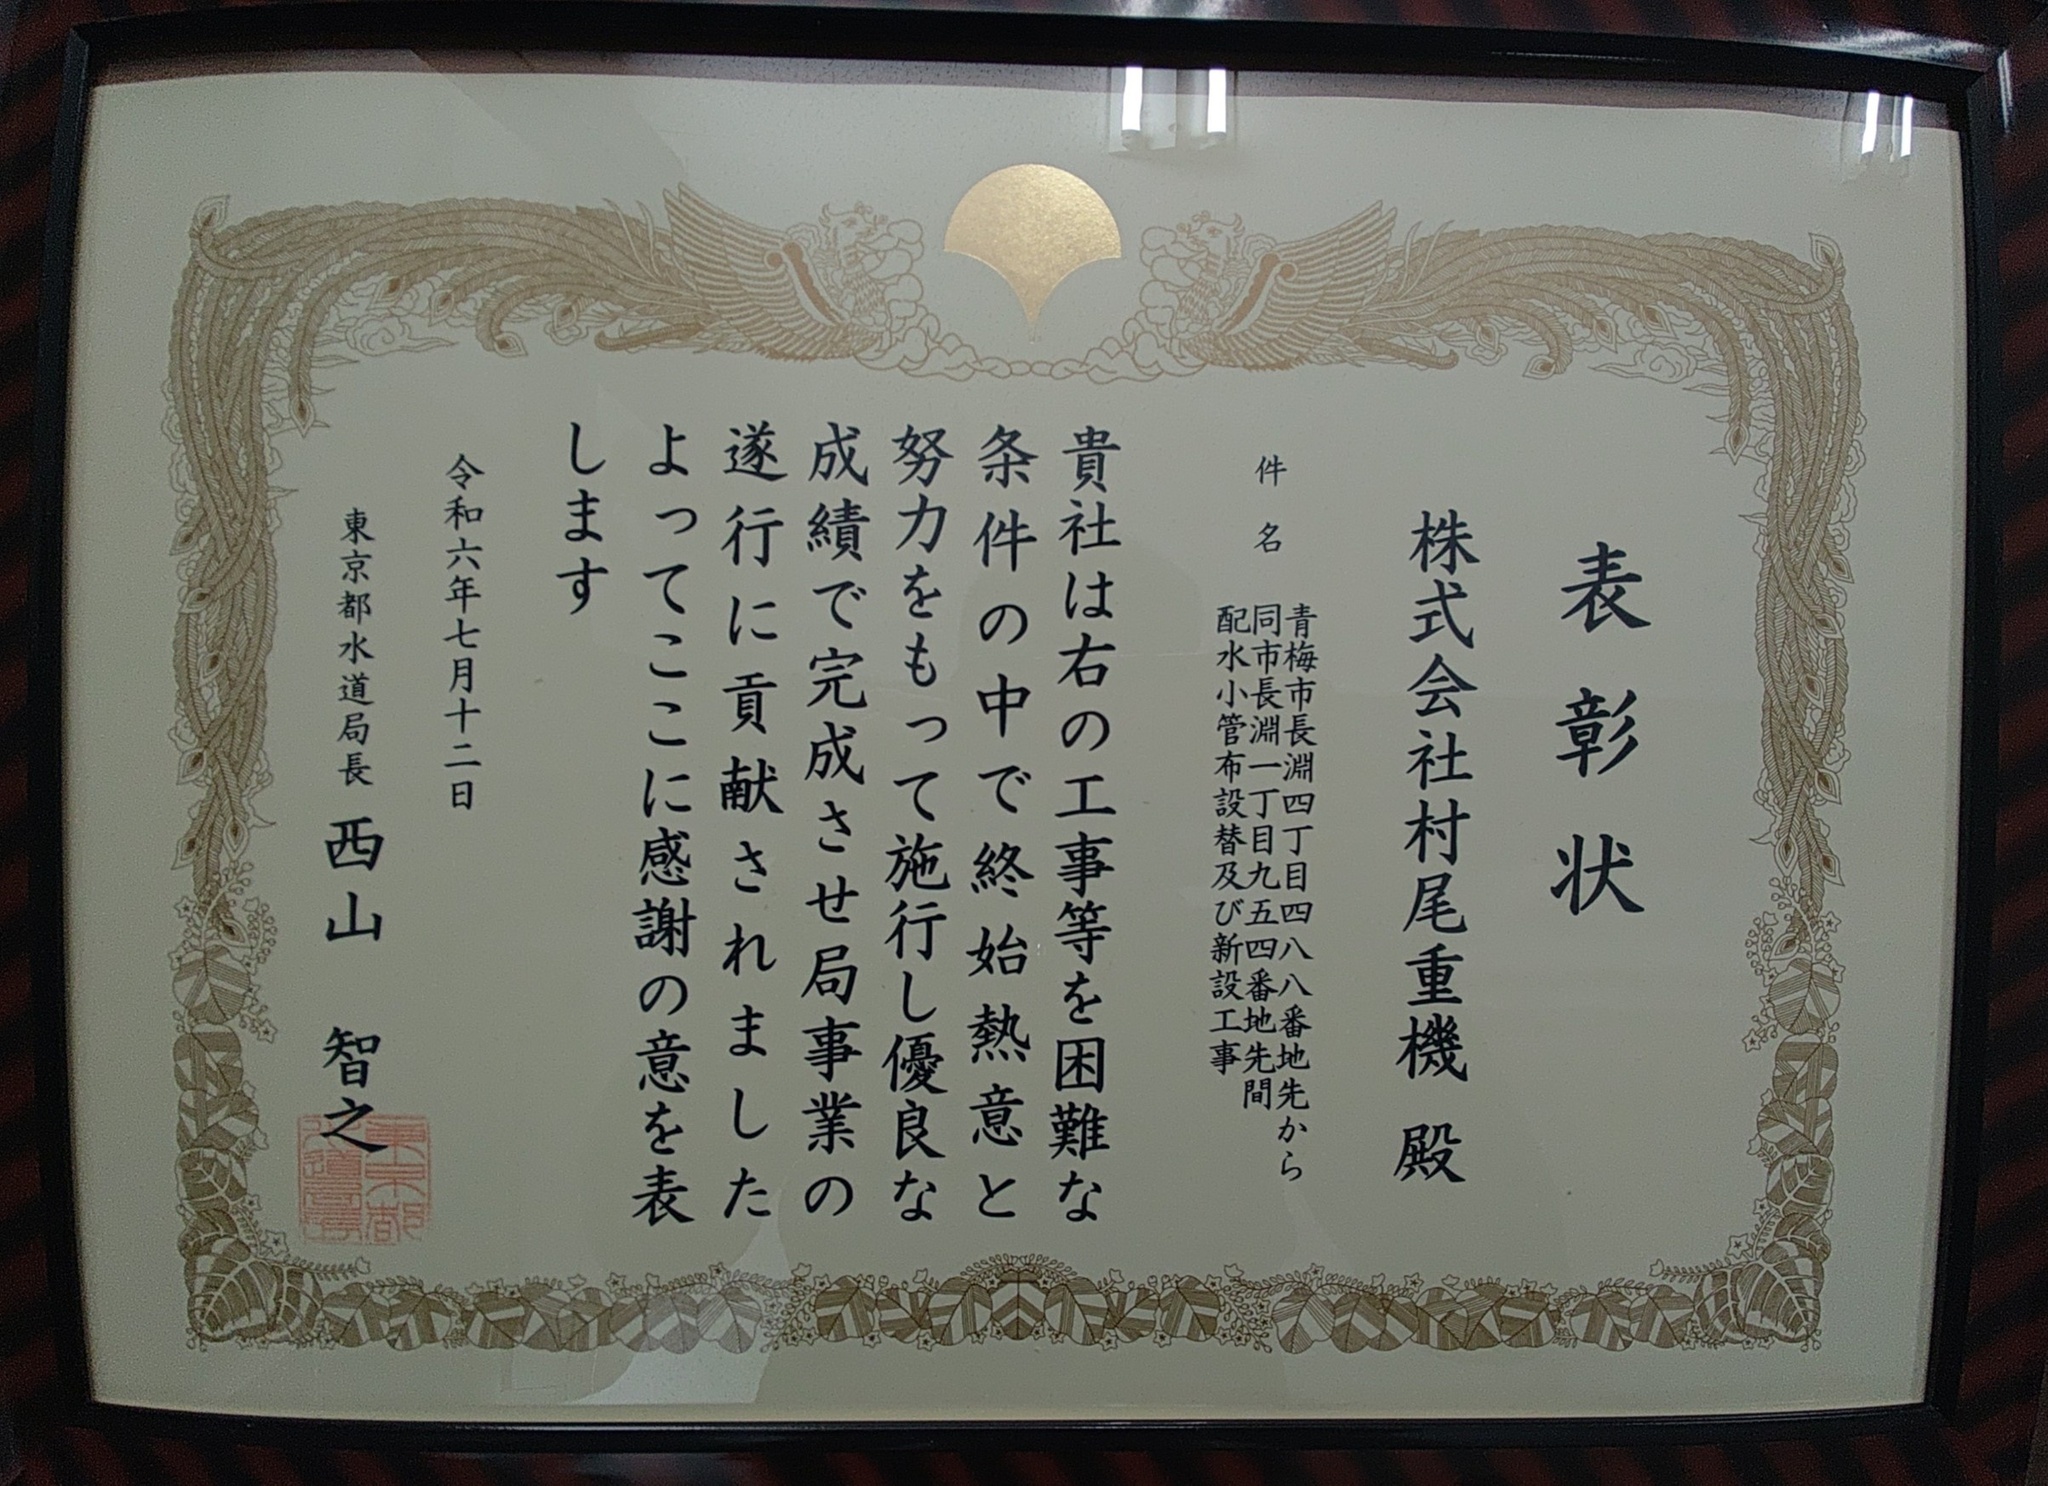 表彰状
株式会社村尾重機 殿
件名
青梅市長淵四丁目四八八番地先から
同市長淵一丁目九五四番地先間
配水小管布設替及び新設工事
貴社は右の工事等を困難な
条件の中で終始熱意と
努力をもって施行し優良な
成績で完成させ局事業の
遂行に貢献されました
よってここに感謝の意を表
します
令和六年七月十二日
東京都水道局長 西山 智之